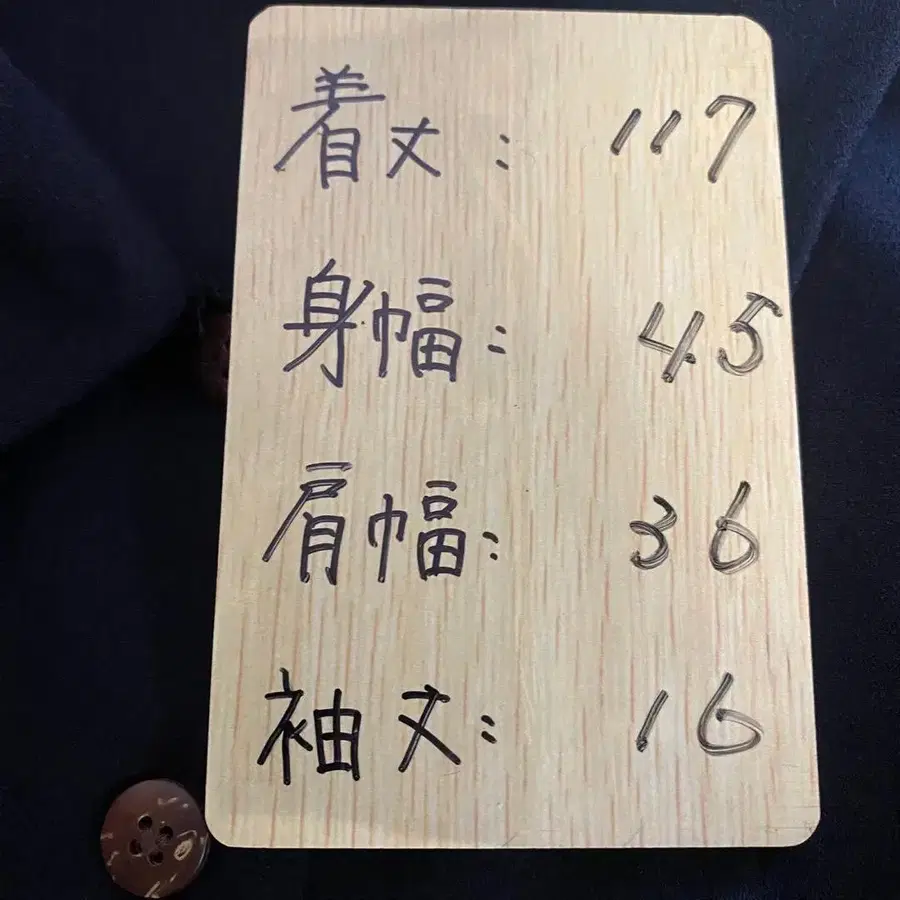 着丈: 117
身幅: 45
肩幅: 36
袖丈: 16